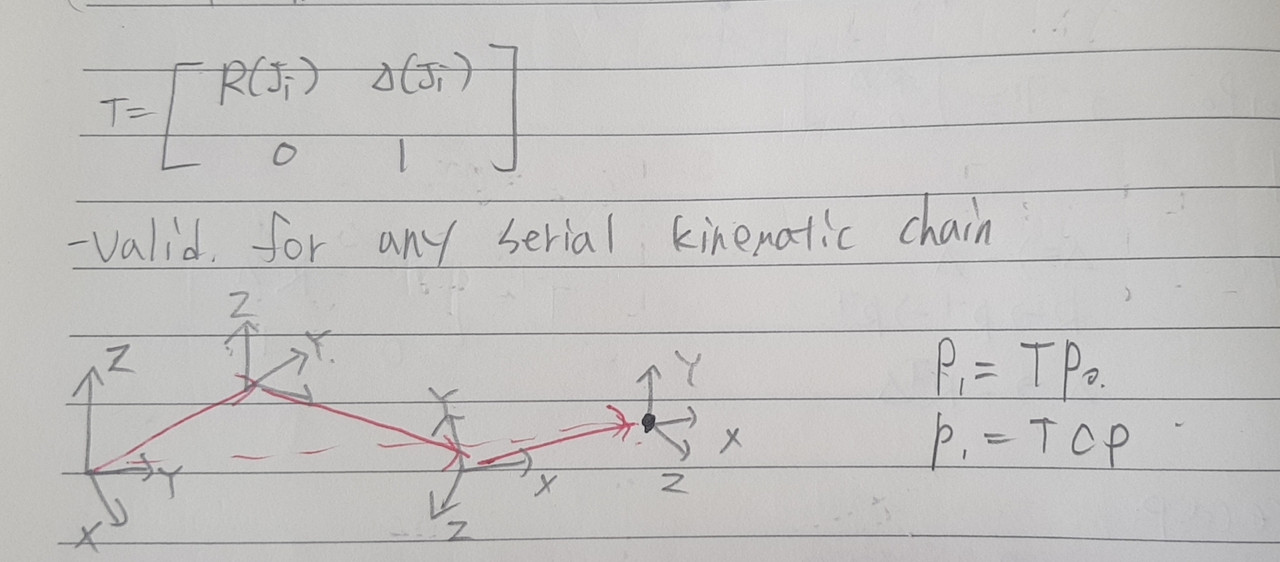 T= [ R(Ji) Δ(Ji)
0 1 ]
-Valid. for any serial kinematic chain
Z
Y.
Z
Y
X
Y
X
Z
Y
X
Z
P₁ = T P₀.
p₁ = T C P